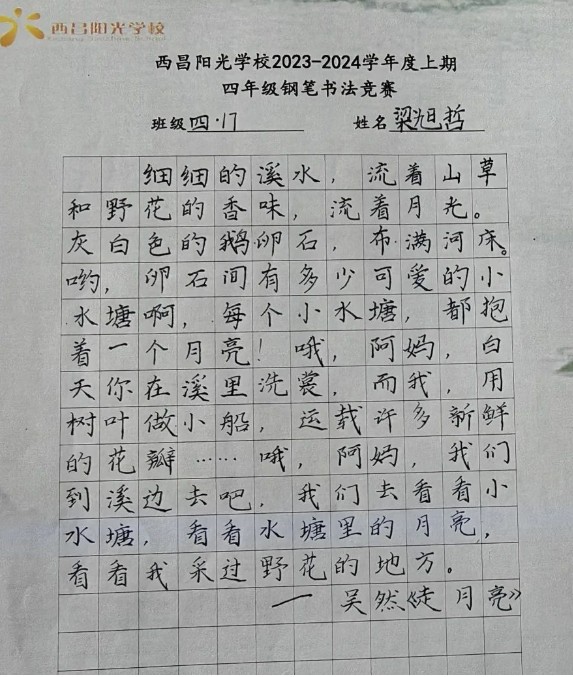 西昌阳光学校
西昌阳光学校2023-2024学年度上期
四年级钢笔书法竞赛
班级四·17 姓名梁旭哲
细细的溪水，流着山草
和野花的香味，流着月光。
灰白色的鹅卵石，布满河床。
哟，卵石间有多少可爱的小
水塘啊，每个小水塘，都抱
着一个月亮！哦，阿妈，白
天你在溪里洗裳，而我，用
树叶做小船，运载许多新鲜
的花瓣……哦，阿妈，我们
到溪边去吧，我们去看看小
水塘，看看水塘里的月亮，
看看我采过野花的地方。
— 吴然《走月亮》